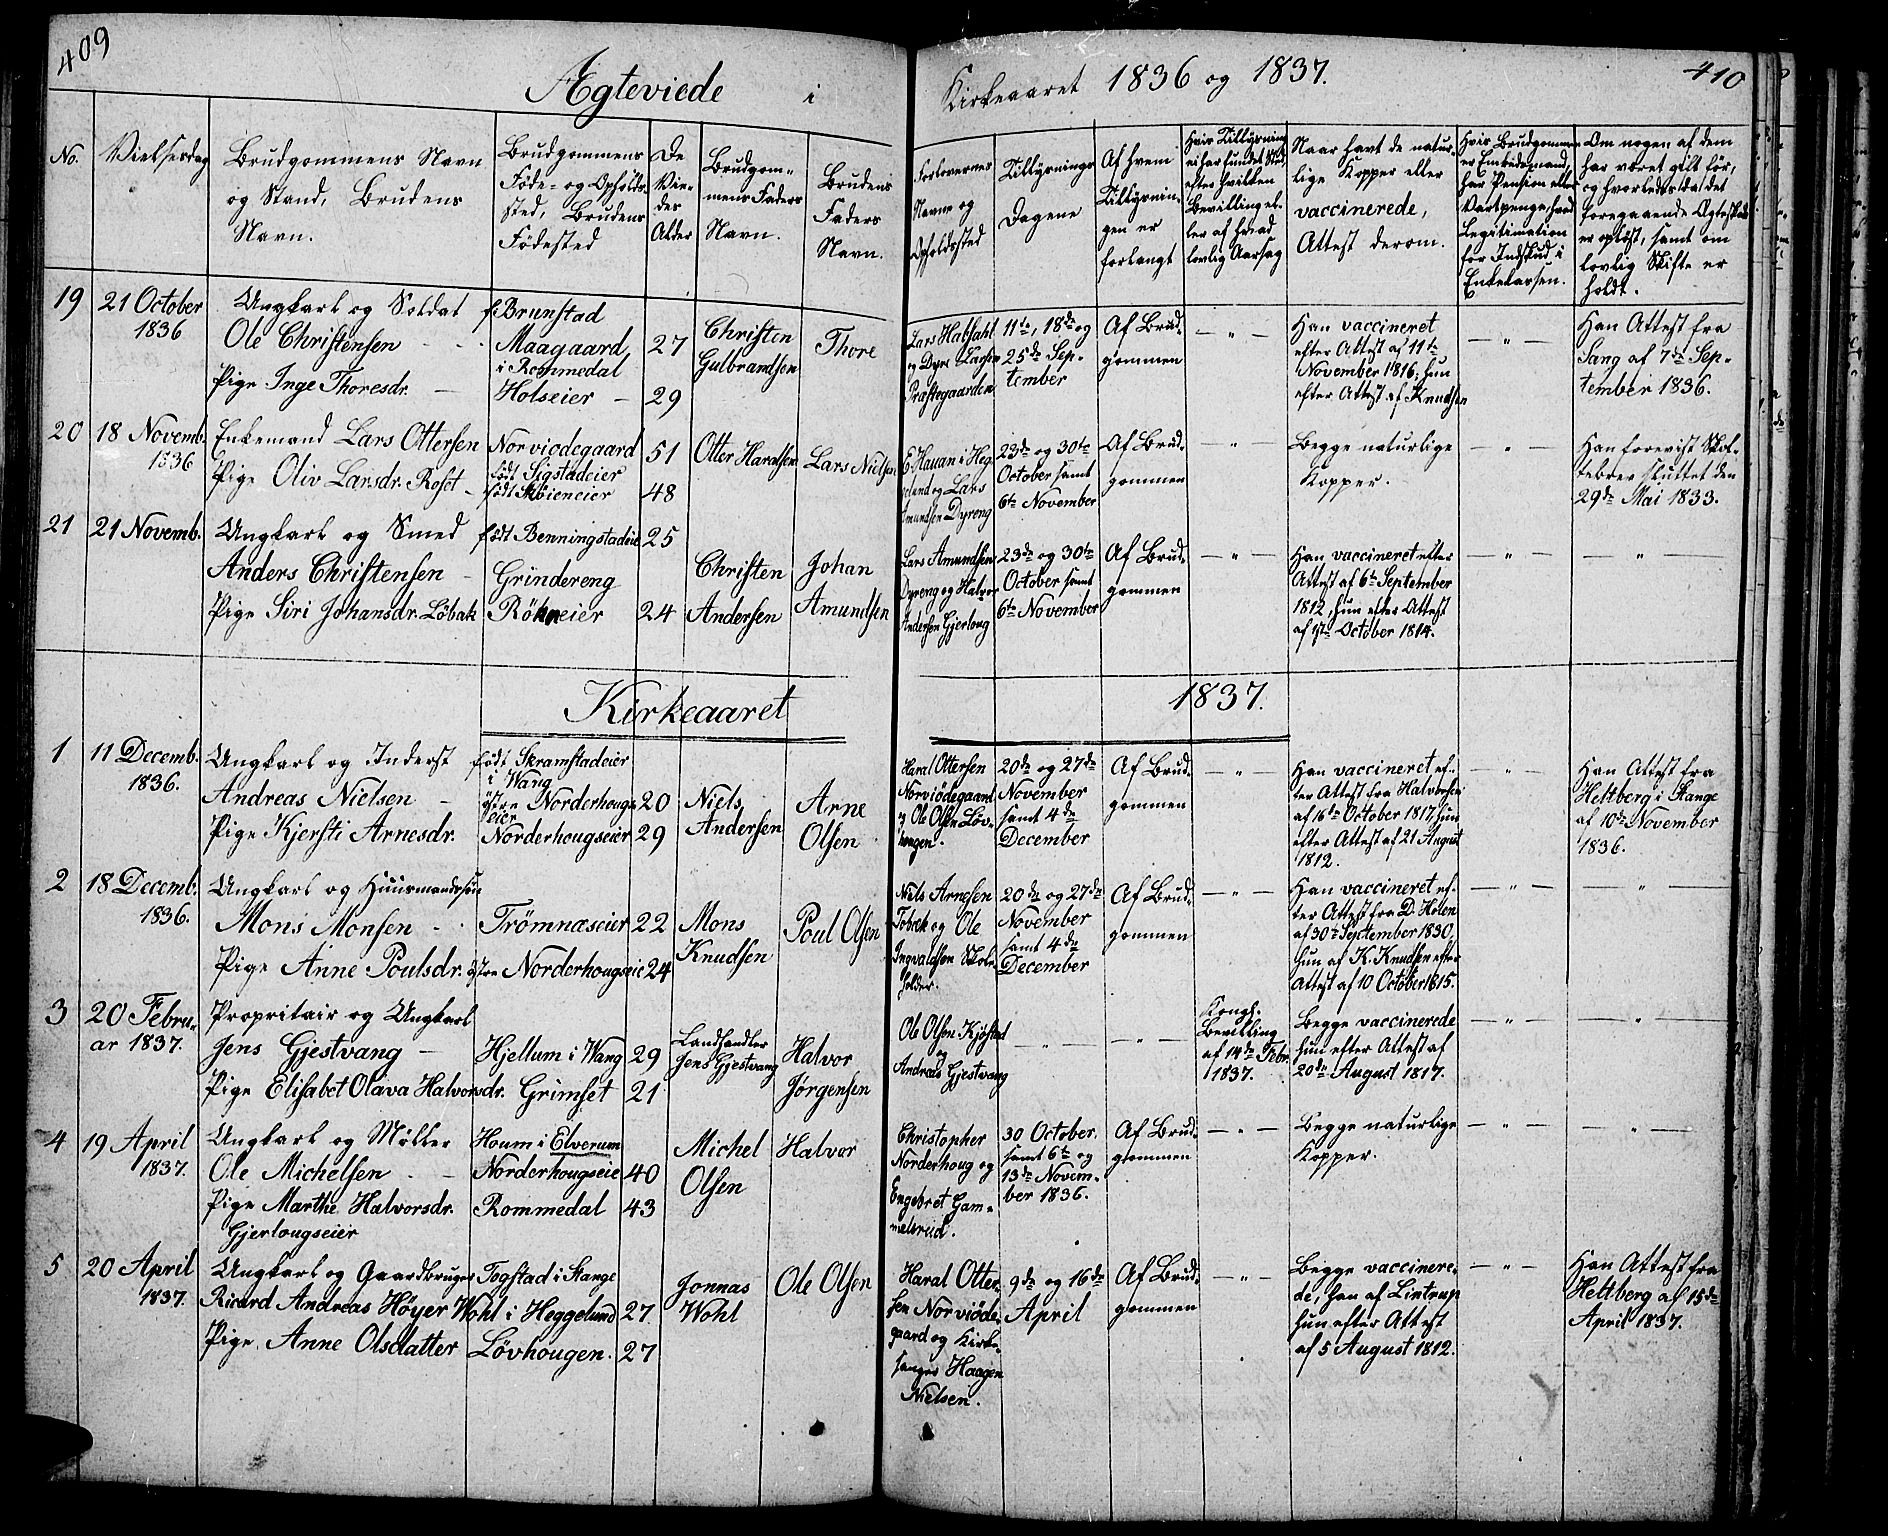 409
Ægteviede i
No.
Vielsesdag
Brudgommens Navn
og Stand, Brudens
Navn.
Brudgommens
Føde- og Opholds-
sted, Brudens
Fødested
De
Vie-
des
Alder
Brudgom-
mens Faders
Navn.
Brudens
Faders
Navn.
19
21 October
1836
Ungkarl og Soldat
Ole Christensen
Pige Inge Thoresdr.
f. Brunstad
Maagaard
i Rommedal
Holseier
27
29
Christen
Gulbrandsen
Thore
20
18 Novemb.
1836
Enkemand Lars Ottersen
Pige Oliv Larsdr. Roset
Norviodegaard
født Sigstadeier
født Moieneier
51
48
Otter Haralsen
Lars Nielsen
21
21 Novemb.
Ungkarl og Smed
Anders Christensen
Pige Siri Johansdr. Löbak
født Benningstadeie
Gründereng
Röhneier
25
24
Christen
Andersen
Johan
Amundsen
Kirkeaaret
1
11 Decemb.
1836.
Ungkarl og Inderst
Andreas Nielsen
Pige Kjersti Arnesdr.
født Skramstadeier
i Wang
östre Norderhougs
eier
Norderhougseier
20
29
Niels
Andersen
Arne
Olsen
2
18 Decemb.
1836.
Ungkarl og Huusmandssøn
Mons Monsen
Pige Anne Poulsdr.
Trömnæseier
östre Norderhougseie
22
24
Mons
Knudsen
Poul Olsen
3
20 Febru-
ar 1837.
Propritair og Ungkarl
Jens Gjestvang
Pige Elisabet Olava Halvorsdr.
Hjellum i Wang
Grimset
29
21
Landhandler
Jens Gjestvang
Halvor
Jørgensen
4
19 April
1837.
Ungkarl og Møller
Ole Michelsen
Pige Marthe Halvorsdr.
Gjerlougseier
Houm i Elverum
Norderhougseie
Rommedal
40
43
Michel
Olsen
Halvor
5
20 April
1837.
Ungkarl og Gaardbruger
Ricard Andreas Höyer Wohl
Pige Anne Olsdatter
Togstad i Stange
i Heggelund
Lövhougen.
27
27
Jonnas
Wohl
Ole Olsen
Kirkeaaret 1836 og 1837.
410
Forlovernes
Navne og
Opholdssted
Tillysnings
Dagene
Af hvem
Tillysnin-
gen er
forlangt
Hvis Tillysning
ei har fundet Sted
efter hvilken
Bevilling el-
ler af hvad
lovlig Aarsag
Naar havt de natur-
lige Kopper eller
vaccinerede,
Attest derom.
Hvis Brudgommen
er Embedsmand,
har Pension eller
Vartpenge, hvad
Legitimation
for Indskud i
Enkekassen.
Om nogen af dem
har været gift før,
og hvorledes da det
foregaaende Ægteskab
er opløst, samt om
lovlig Skifte er
holdt.
Lars Halsahl
og Dyre Larsen
Præstegaarden
11te, 18de og
25de Sep-
tember
Af Brud-
gommen
— „ —
Han vaccineret
efter Attest af 11te
November 1816; hun
efter Attest af Knudsen
— „ —
Han Attest fra
Sang af 7de Sep-
tember 1836.
E. Hauan i Heg
gelund og Lars
Amundsen Dyreng
23de og 30te
October samt
6te November
Af Brud-
gommen
— „ —
Begge naturlige
Kopper.
— „ —
Han forevist Skif-
tebrev sluttet den
29de Mai 1833.
Lars Amundsen
Dyreng og Halvor
Andersen Gjerloug
23de og 30te
October samt
6te November
Af Brud-
gommen
— „ —
Han vaccineret efter
Attest af 6te September
1812, hun efter Attest
af 1ste October 1814.
— „ —
„
1837.
Haral Ottersen
Norviödegaard
og Ole Olsen Löv-
hougen.
20de og 27de
November
samt 4de
December
Af Brud-
gommen
— „ —
Han vaccineret ef-
ter Attest fra Halvorsen
af 16de October 1817, hun
efter Attest af 21 August
1812.
— „ —
Han Attest fra
Heltberg i Stange
af 10de November
1836.
Niels Arnesen
og Ole
Ingvaldsen Skole-
holder.
20de og 27de
November
samt 4de
December
Af Brud-
gommen
— „ —
Han vaccineret ef-
ter Attest fra D. Holen
af 30te September 1830,
hun af K. Knudsen efter
Attest af 10 October 1815.
— „ —
„
Ole Olsen Kjöstad
og
Andreas Gjestvang
— „ —
— „ —
Kongl.
Bevilling
af 14de Febr.
1837.
Begge vaccinerede
hun efter Attest af
20de August 1817.
— „ —
„
Christopher
Norderhoug og
Engebret Gam-
melsrud.
30 October.
samt 6te og
13de Novem-
ber 1836.
Af Brud-
gommen
— „ —
Begge naturlige
Kopper.
— „ —
— „ —
Haral Otter-
sen Norviöde-
gaard og Kirke-
sanger Haagen
Nielsen.
9de og 16de
April
Af Brud-
gommen
— „ —
Begge vaccinere-
de, han af Lintrup
hun efter Attest
af 5 August 1812.
— „ —
Han Attest fra
Heltberg af 15de
April 1837.